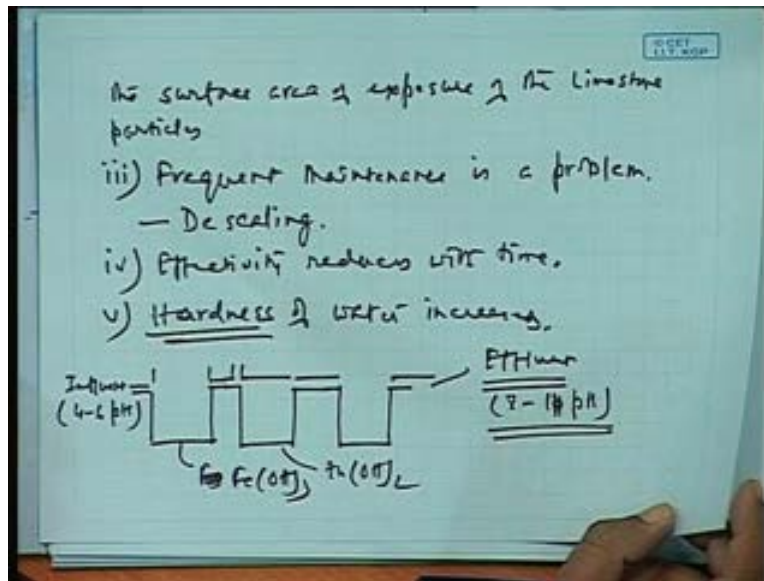 © CET
I.I.T. KGP
the surface area of exposure of the Limestone
particles
iii) Frequent Maintenance is a problem.
— Descaling.
iv) Effectivity reduces with time.
v) Hardness of water increases.
Influent
(4-6 pH)
Effluent
Fe(OH)3
(OH)2